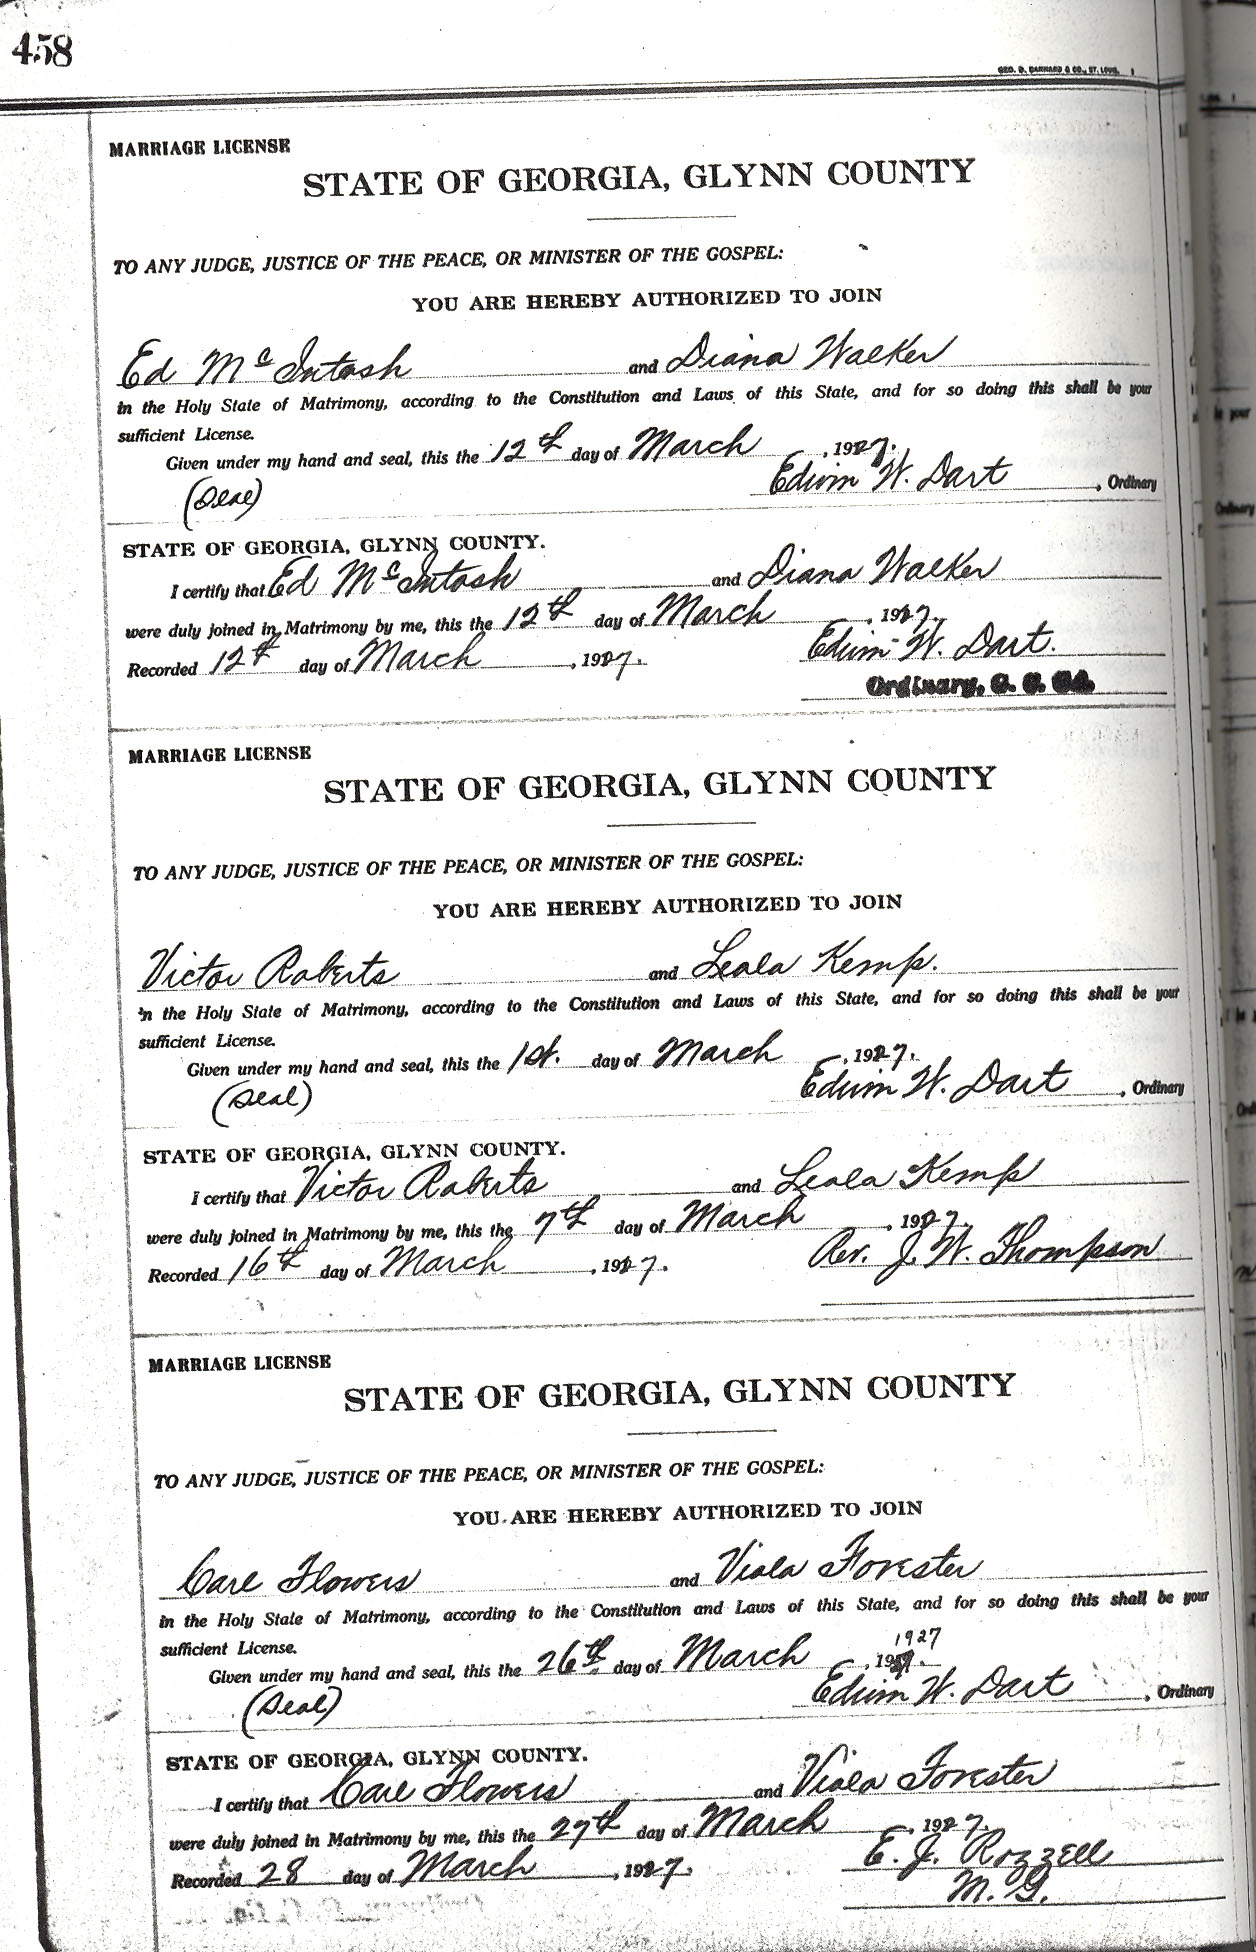 458
GEO. D. BARNARD & CO., ST. LOUIS.
MARRIAGE LICENSE
STATE OF GEORGIA, GLYNN COUNTY
TO ANY JUDGE, JUSTICE OF THE PEACE, OR MINISTER OF THE GOSPEL:
YOU ARE HEREBY AUTHORIZED TO JOIN
Ed McIntosh and Diana Walker
in the Holy State of Matrimony, according to the Constitution and Laws of this State, and for so doing this shall be your
sufficient License.
Given under my hand and seal, this the 12th day of March, 1927.
(Seal) Edwin W. Dart, Ordinary
STATE OF GEORGIA, GLYNN COUNTY.
I certify that Ed McIntosh and Diana Walker
were duly joined in Matrimony by me, this the 12th day of March, 1927.
Recorded 12th day of March, 1927. Edwin W. Dart.
Ordinary, G. C. Ga.
MARRIAGE LICENSE
STATE OF GEORGIA, GLYNN COUNTY
TO ANY JUDGE, JUSTICE OF THE PEACE, OR MINISTER OF THE GOSPEL:
YOU ARE HEREBY AUTHORIZED TO JOIN
Victor Roberts and Leala Kemp.
in the Holy State of Matrimony, according to the Constitution and Laws of this State, and for so doing this shall be your
sufficient License.
Given under my hand and seal, this the 1st. day of March, 1927.
(Seal) Edwin W. Dart, Ordinary
STATE OF GEORGIA, GLYNN COUNTY.
I certify that Victor Roberts and Leala Kemp
were duly joined in Matrimony by me, this the 7th day of March, 1927.
Recorded 16th day of March, 1927. Rev. J. W. Thompson
MARRIAGE LICENSE
STATE OF GEORGIA, GLYNN COUNTY
TO ANY JUDGE, JUSTICE OF THE PEACE, OR MINISTER OF THE GOSPEL:
YOU ARE HEREBY AUTHORIZED TO JOIN
Carl Flowers and Viola Forester
in the Holy State of Matrimony, according to the Constitution and Laws of this State, and for so doing this shall be your
sufficient License.
1927
Given under my hand and seal, this the 26th. day of March, 1927.
(Seal) Edwin W. Dart, Ordinary
STATE OF GEORGIA, GLYNN COUNTY.
I certify that Carl Flowers and Viola Forester
were duly joined in Matrimony by me, this the 27th day of March, 1927.
Recorded 28 day of March, 1927. E. J. Rozzell
M. G.